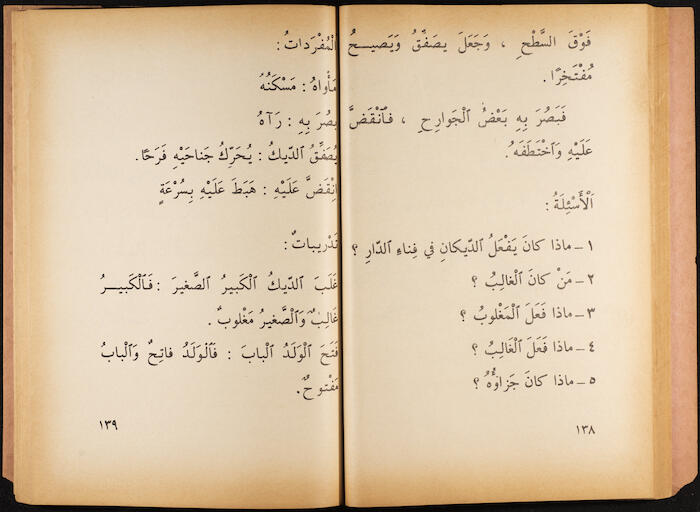 فَوْقَ السَّطْحِ ، وَجَعَلَ يصَفِّقُ وَيَصيـــحُ
مُفْتَخِرًا .
فَبَصُرَ بِهِ بَعْضُ الْجَوارِحِ ، فَٱنْقَضَّ
عَلَيْهِ وَٱخْتَطَفَهُ .
اَلْأَسْئِلَةُ :
١ ـ ماذا كانَ يَفْعَلُ الدّيكانِ في فِناءِ الدّارِ ؟
٢ ـ مَنْ كانَ الْغالِبُ ؟
٣ ـ ماذا فَعَلَ الْمَغْلوبُ ؟
٤ ـ ماذا فَعَلَ الْغَالِبُ ؟
٥ ـ ماذا كانَ جَزاؤُهُ ؟
١٣٨
الْمُفْرَداتُ :
مَأْواهُ : مَسْكَنُهُ
بَصُرَ بِهِ : رَآهُ
يُصَفِّقُ الدّيكُ : يُحَرِّكُ جَناحَيْهِ فَرَحًا .
اِنْقَضَّ عَلَيْهِ : هَبَطَ عَلَيْهِ بِسُرْعَةٍ
تَدْريباتٌ :
غَلَبَ الدّيكُ الْكَبيرُ الصَّغيرَ : فَٱلْكَبيـــرُ
غالِبٌ وَٱلْصَّغيرُ مَغْلوبٌ .
فَتَحَ الْوَلَدُ الْبابَ : فَٱلْوَلَدُ فاتِحٌ وَٱلْبابُ
مَفْتوحٌ .
١٣٩